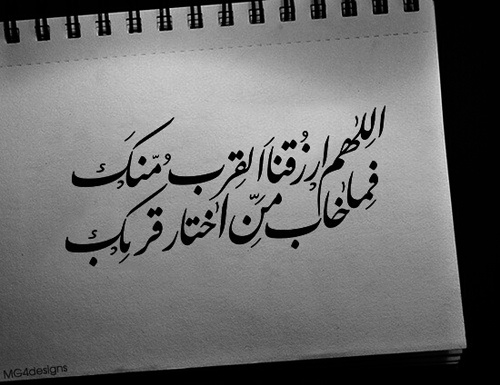 اللهم ارزقنا القرب منك
فما خاب من اختار قربك
MG4designs